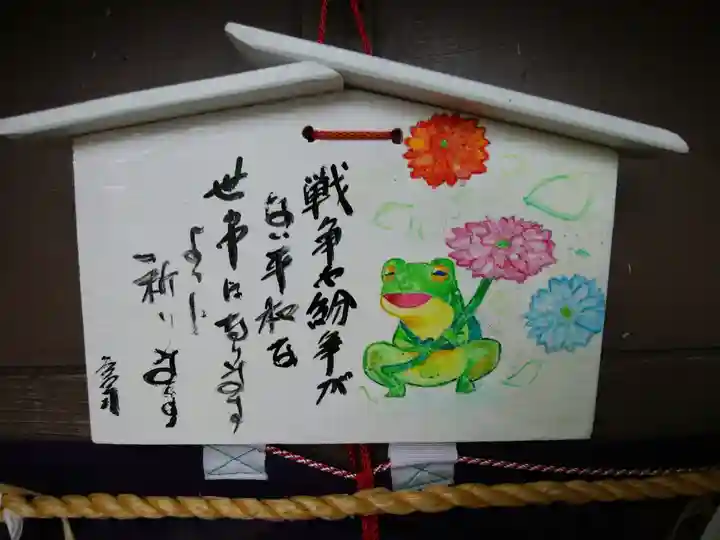 戦争や紛争が
ない平和な
世界になります
ように
お祈ります